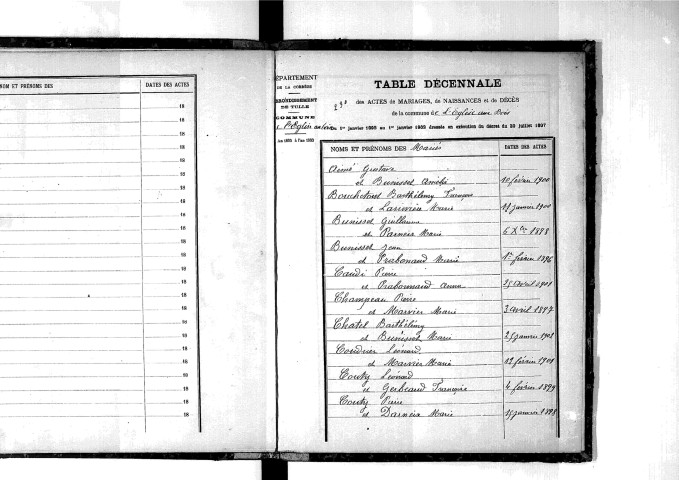 NOM ET PRÉNOMS DES
DATES DES ACTES
18
18
18
18
18
18
18
18
18
18
18
18
18
18
18
18
18
18
18
DÉPARTEMENT
DE LA CORRÈZE
ARRONDISSEMENT
DE TULLE
COMMUNE
de l'Eglise au bois
de 1893 à l'an 1903
TABLE DÉCENNALE
des ACTES de MARIAGES, de NAISSANCES et de DÉCÈS
de la commune de L'Eglise aux Bois
du 1er janvier 1893 au 1er janvier 1903 dressée en exécution du décret du 20 juillet 1807
NOMS ET PRÉNOMS DES Mariés
DATES DES ACTES
Aimé Gustave
et Bunisset Amélie
10 février 1900
Barthélemy François
et Marie
18 janvier 1900
Bunisset Guillaume
et Marie
6 Xbre 1898
Bunisset Jean
et Prabonnaud Marie
1er février 1896
Caudi Pierre
et Prabonnaud Anna
25 avril 1901
Champeau Pierre
et Marvier Marie
3 avril 1897
Chatel Barthélemy
et Bunisset Marie
25 janvier 1901
Léonard
et Marvier Marie
12 février 1901
Couty Léonard
et Gerbeaud Françoise
4 février 1899
Couty Pierre
et Darneix Marie
15 janvier 1898